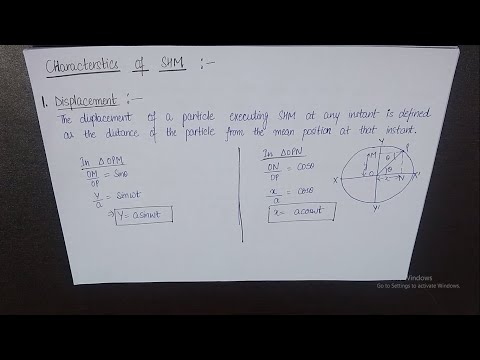 Characterstics of SHM :-
1. Displacement :-
The displacement of a particle executing SHM at any instant is defined
as the distance of the particle from the mean position at that instant.
In ΔOPM
OM/OP = Sinθ
y/a = Sinωt
⇒ y = asinωt
In ΔOPN
ON/OP = Cosθ
x/a = cosθ
x = acosωt
Y
P
M
θ
y
a
X
O
θ
N
X'
x
Y'
Windows
Go to Settings to activate Windows.